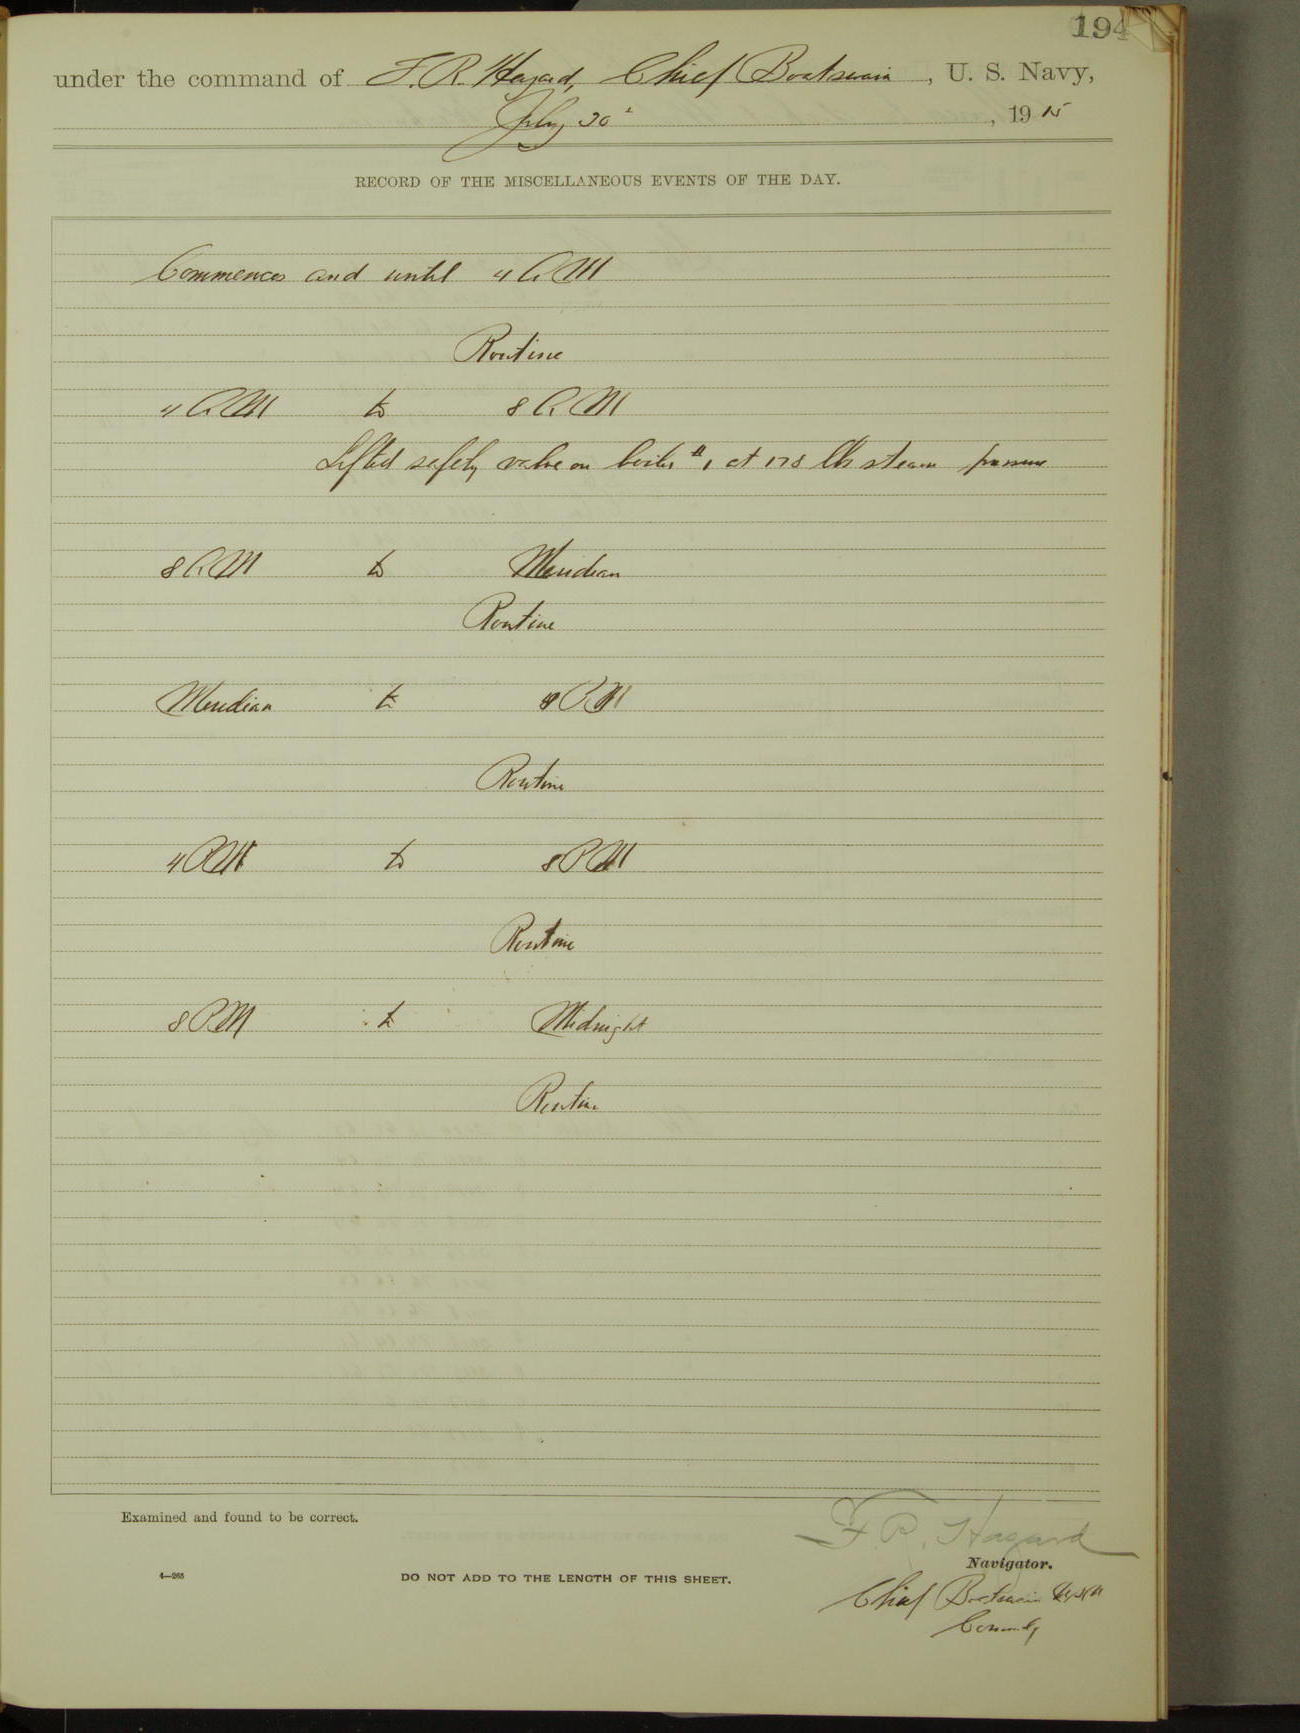 194
under the command of F. R. Hazard, Chief Boatswain, U. S. Navy,
July 30", 1915
RECORD OF THE MISCELLANEOUS EVENTS OF THE DAY.
Commences and until 4 A.M
Routine
4 A.M to 8 A.M
Lifted safety valve on boiler #1 at 178 lbs steam pressure
8 A.M to Meridian
Routine
Meridian to 4 P.M
Routine
4 P.M to 8 P.M
Routine
8 P.M to Midnight
Routine
Examined and found to be correct.
F. R. Hazard
Navigator.
4—265
DO NOT ADD TO THE LENGTH OF THIS SHEET.
Chief Boatswain U.S.N
Comm'd'g